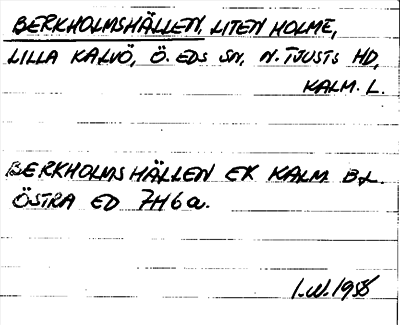 BERKHOLMSHÄLLEN, LITEN HOLME,
LILLA KALVÖ, Ö. EDS SN, N. TJUSTS HD,
KALM. L.
BERKHOLMSHÄLLEN EK KALM BL.
ÖSTRA ED 7H6a.
I.W. 1958